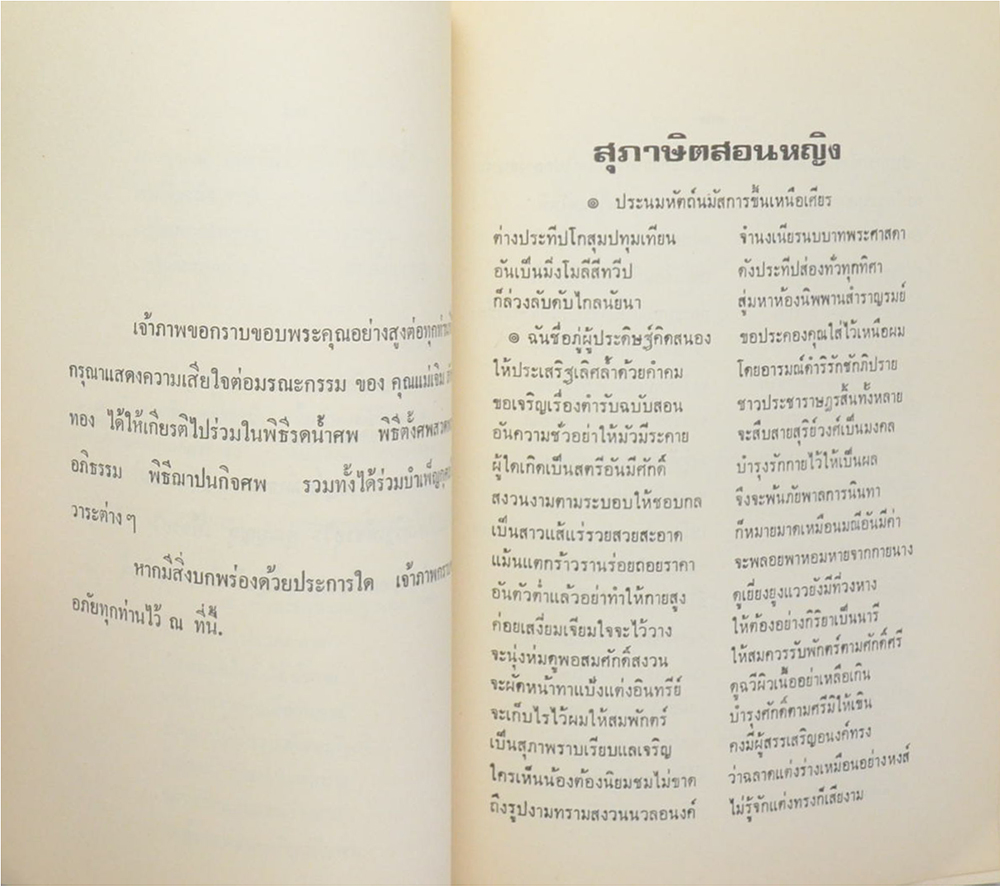 เจ้าภาพขอกราบขอบพระคุณอย่างสูงต่อทุกท่าน
กรุณาแสดงความเสียใจต่อมรณะกรรม ของ คุณแม่เจิม
ทอง ได้ให้เกียรติไปร่วมในพิธีรดน้ำศพ พิธีตั้งศพสวด
อภิธรรม พิธีฌาปนกิจศพ รวมทั้งได้ร่วมบำเพ็ญกุศล
วาระต่างๆ
หากมีสิ่งบกพร่องด้วยประการใด เจ้าภาพกราบ
อภัยทุกท่านไว้ ณ ที่นี้.
สุภาษิตสอนหญิง
๏ ประนมหัตถ์นมัสการขึ้นเหนือเศียร
ต่างประทีปโกสุมปทุมเทียน จำนงเนียรนบบาทพระศาสดา
อันเป็นมิ่งโมลีสี่ทวีป ดังประทีปส่องทั่วทุกทิศา
ก็ล่วงลับดับไกลนัยนา สู่มหาห้องนิพพานสำราญรมย์
๏ ฉันชื่อภู่ผู้ประดิษฐ์คิดสนอง ขอประคองคุณใส่ไว้เหนือผม
ให้ประเสริฐเลิศล้ำด้วยคำคม โดยอารมณ์ดำริรักชักภิปราย
ขอเจริญเรื่องตำรับฉบับสอน ชาวประชาราษฎรสิ้นทั้งหลาย
อันความชั่วอย่าให้มัวมีระคาย จะสืบสายสุริย์วงศ์เป็นมงคล
ผู้ใดเกิดเป็นสตรีอันมีศักดิ์ บำรุงรักกายไว้ให้เป็นผล
สงวนงามตามระบอบให้ชอบกล จึงจะพ้นภัยพาลการนินทา
เป็นสาวแส้แร่รวยสวยสะอาด ก็หมายมาดเหมือนมณีอันมีค่า
แม้นแตกร้าวรานร่อยถอยราคา จะพลอยพาหอมหายจากกายนาง
อันตัวต่ำแล้วอย่าทำให้กายสูง ดูเยี่ยงยูงแววยังมีที่วงหาง
ค่อยเสงี่ยมเจียมใจจะไว้วาง ให้ต้องอย่างกิริยาเป็นนารี
จะนุ่งห่มดูพอสมศักดิ์สงวน ให้สมควรรับพักตร์ตามศักดิ์ศรี
จะผัดหน้าทาแป้งแต่งอินทรีย์ ดูฉวีผิวเนื้ออย่าเหลือเกิน
จะเก็บไรไว้ผมให้สมพักตร์ บำรุงศักดิ์ตามศรีมิให้เขิน
เป็นสุภาพราบเรียบแลเจริญ คงมีผู้สรรเสริญอนงค์ทรง
ใครเห็นน้องต้องนิยมชมไม่ขาด ว่าฉลาดแต่งร่างเหมือนอย่างหงส์
ถึงรูปงามทรามสงวนนวลอนงค์ ไม่รู้จักแต่งทรงก็เสียงาม